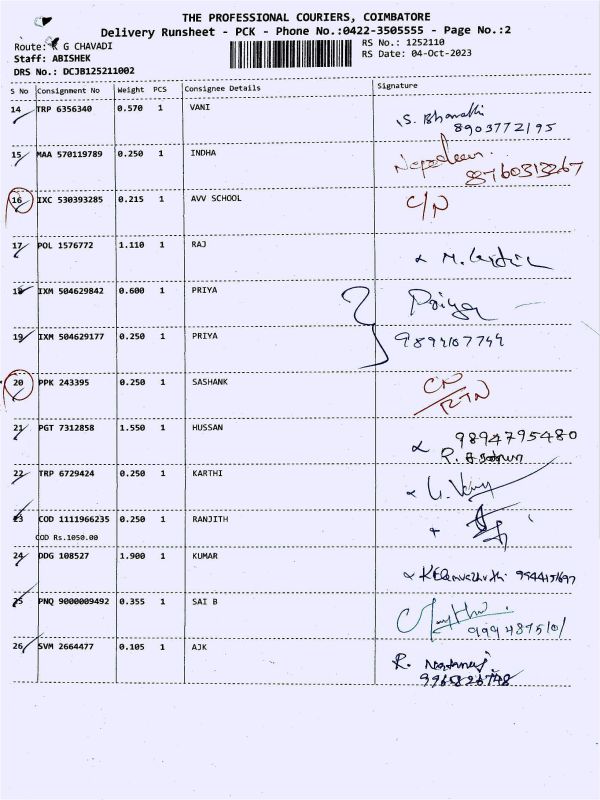 THE PROFESSIONAL COURIERS, COIMBATORE
Delivery Runsheet - PCK - Phone No.:0422-3505555 - Page No.:2
Route: K G CHAVADI
RS No.: 1252110
Staff: ABISHEK
RS Date: 04-Oct-2023
DRS No.: DCJB125211002
S No Consignment No Weight PCS Consignee Details Signature
14 TRP 6356340 0.570 1 VANI S.
8903772195
15 MAA 570119789 0.250 1 INDHA
8760313267
16 IXC 530393285 0.215 1 AVV SCHOOL C/N
17 POL 1576772 1.110 1 RAJ
18 IXM 504629842 0.600 1 PRIYA Priya
19 IXM 504629177 0.250 1 PRIYA 9894107744
20 PPK 243395 0.250 1 SASHANK CN
RTN
21 PGT 7312858 1.550 1 HUSSAN 9894795480
22 TRP 6729424 0.250 1 KARTHI
23 COD 1111966235 0.250 1 RANJITH
COD Rs.1050.00
24 DDG 108527 1.900 1 KUMAR
25 PNQ 9000009492 0.355 1 SAI B
26 SVM 2664477 0.105 1 AJK R.
9965826748